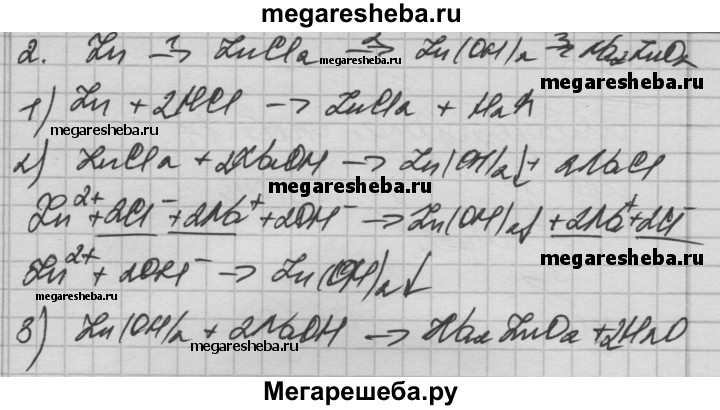 megaresheba.ru
2. Zn 1→ ZnCl2 2→ Zn(OH)2 3→ Na2ZnO2
megaresheba.ru
megaresheba.ru
1) Zn + 2HCl → ZnCl2 + H2↑
megaresheba.ru
2) ZnCl2 + 2NaOH → Zn(OH)2↓ + 2NaCl
megaresheba.ru
Zn2+ + 2Cl- + 2Na+ + 2OH- → Zn(OH)2↓ + 2Na+ + 2Cl-
megaresheba.ru
Zn2+ + 2OH- → Zn(OH)2↓
megaresheba.ru
3) Zn(OH)2 + 2NaOH → Na2ZnO2 + 2H2O
megaresheba.ru
Мегарешеба.ру